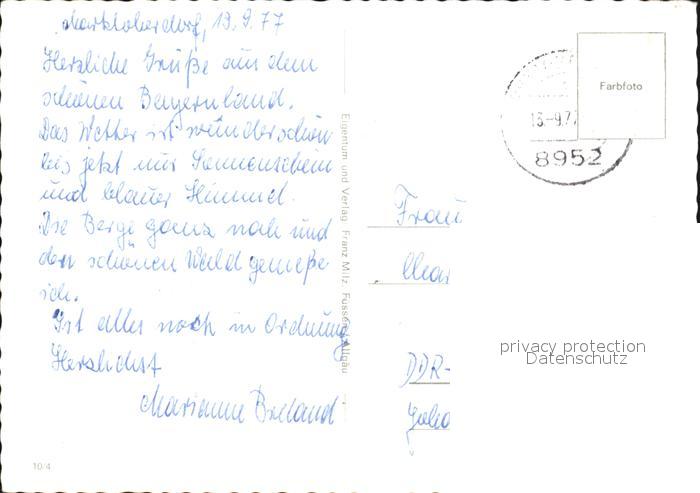 Marktoberdorf, 13.9.77
Herzliche Grüße aus dem
schönen Bayernland.
Das Wetter ist wunderschön
bis jetzt nur Sonnenschein
und blauer Himmel.
Die Berge ganz nah und
den schönen Wald genieße
ich.
Ist alles noch in Ordnung
Herzlichst
Marianne
Eigentum und Verlag Franz Milz Füssen Allgäu
10/4
Farbfoto
13.-9.77
8952
Frau
DDR-
privacy protection
Datenschutz